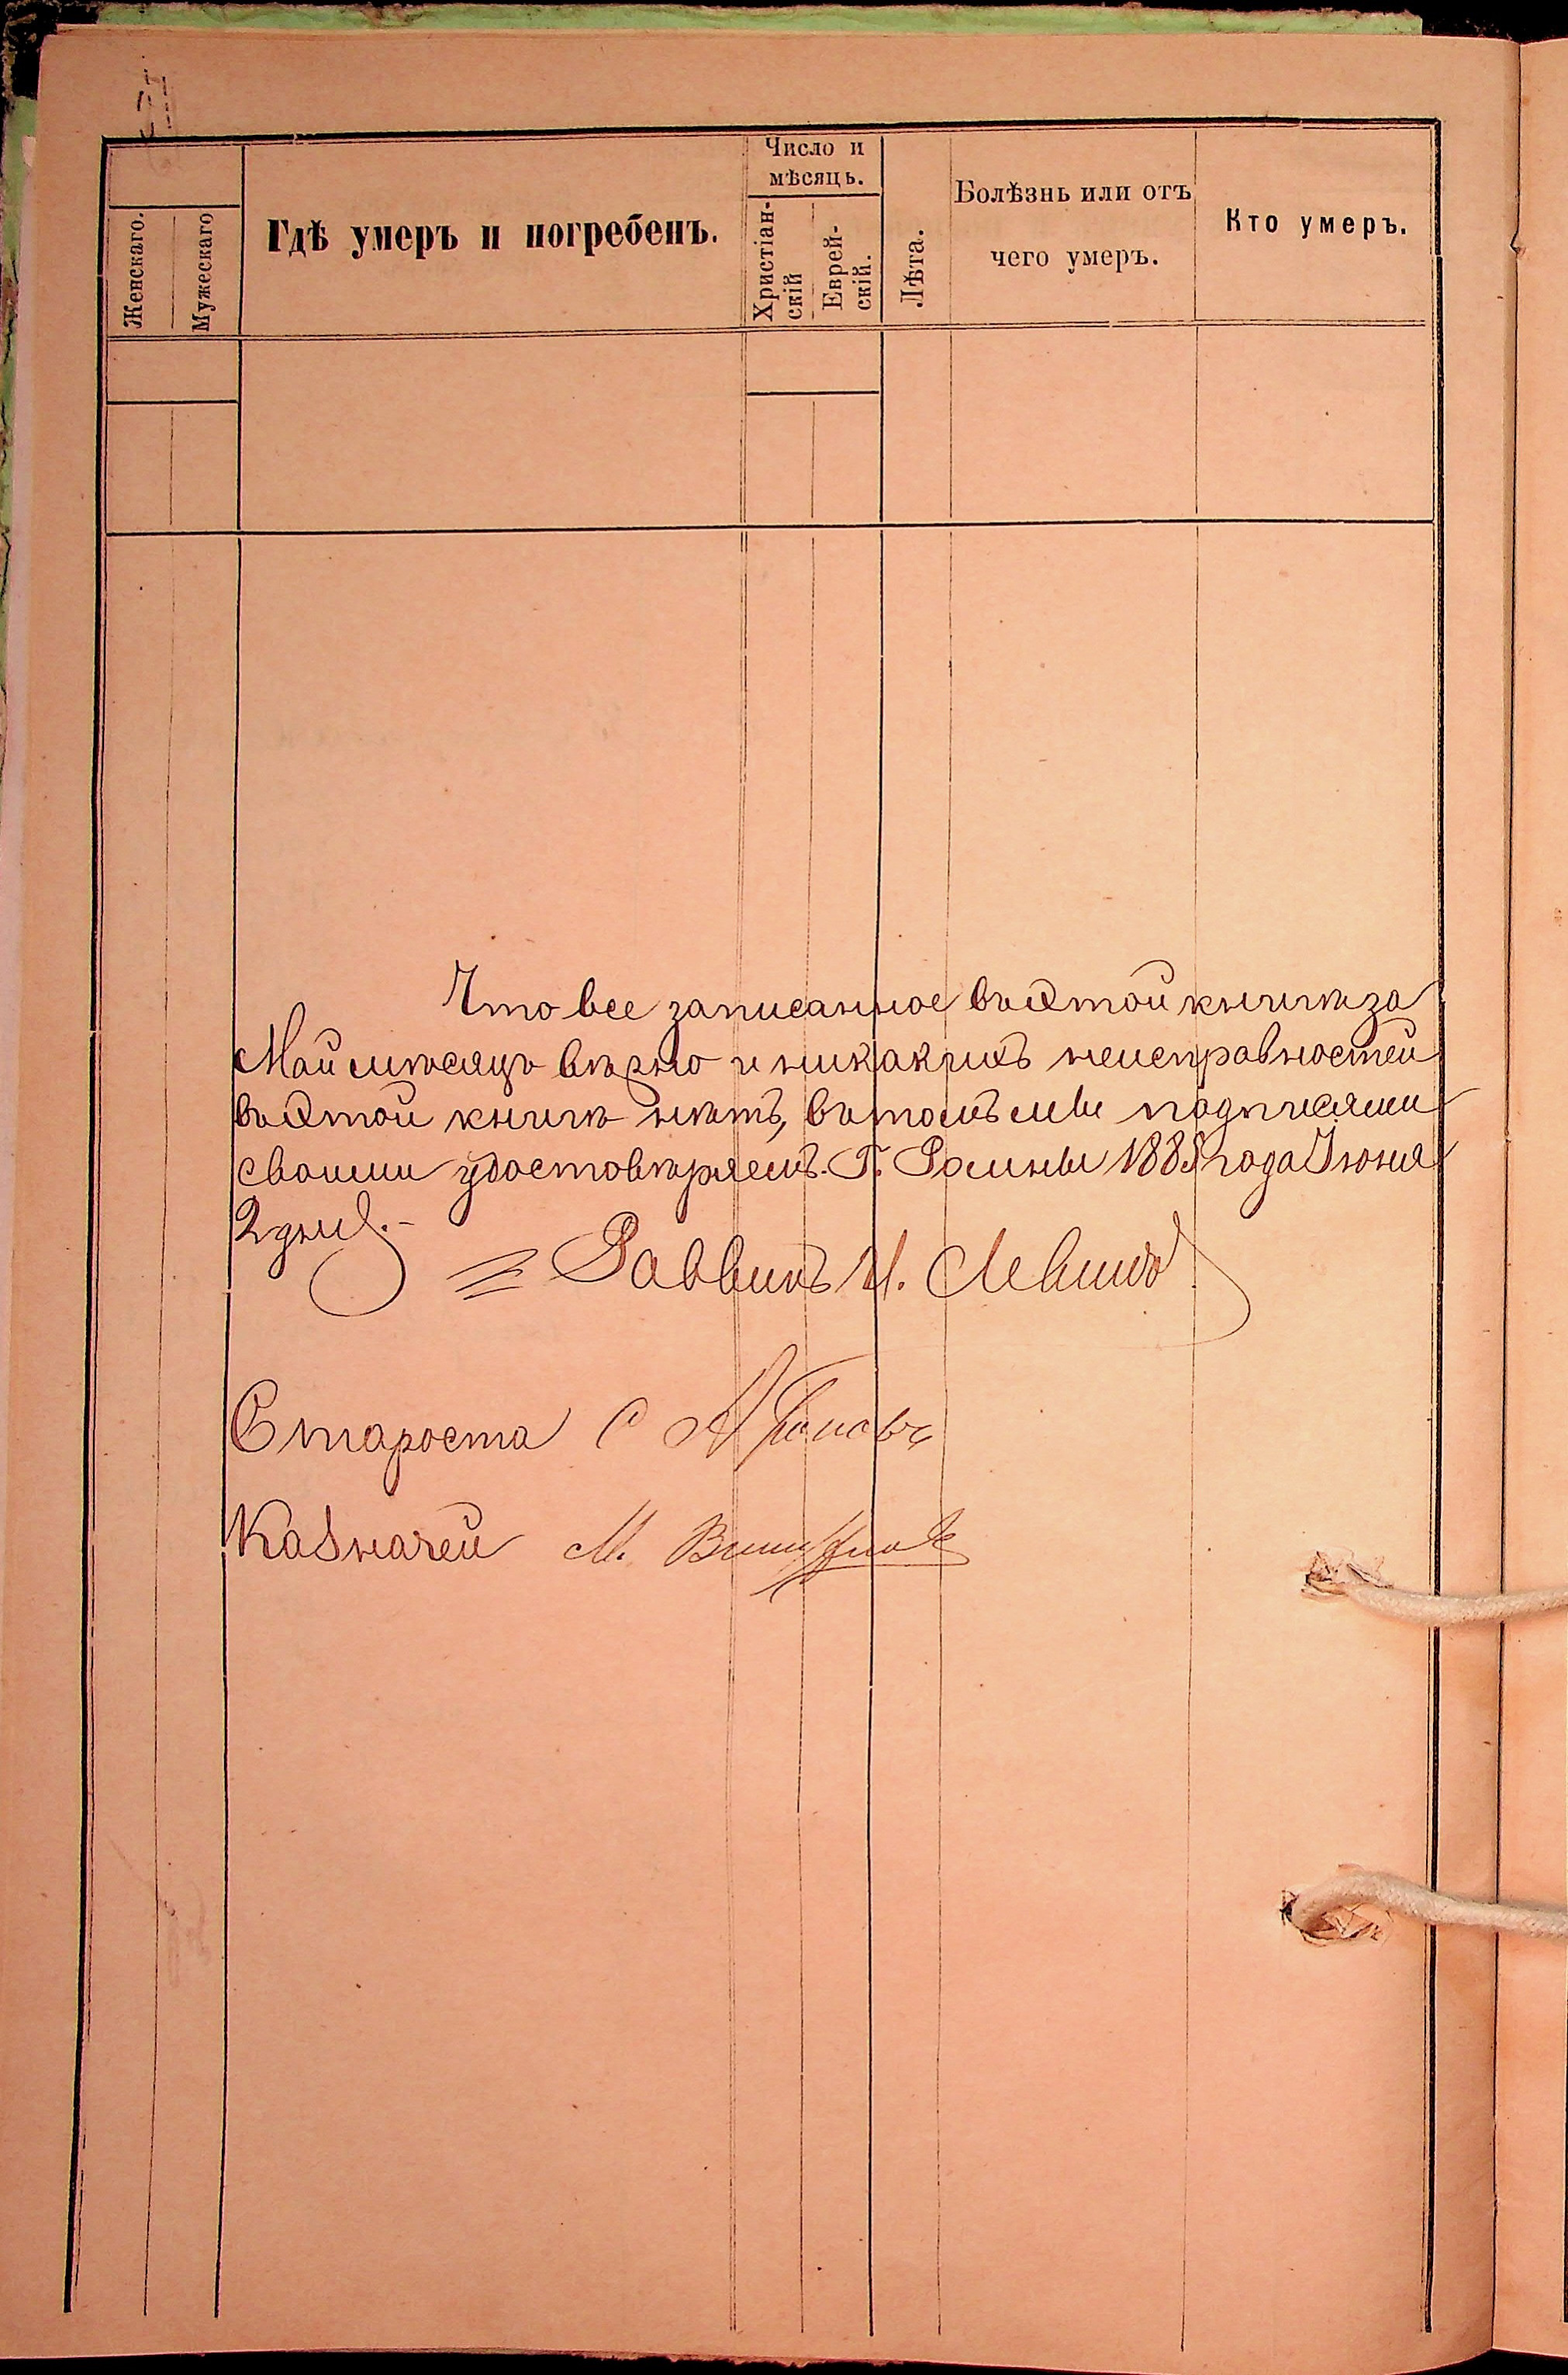 Женскаго.
Мужескаго
Гдѣ умеръ и погребенъ.
Число и
мѣсяцъ.
Христіан-
скій
Еврей-
скій.
Лѣта.
Болѣзнь или отъ
чего умеръ.
Кто умеръ.
Что все записанное въ этой книгѣ за
Май мѣсяцъ вѣрно и никакихъ неисправностей
въ этой книгѣ нѣтъ, въ томъ мы подписями
своими удостовѣряемъ. Г. Ромны 1885 года Іюня
2 дня.-
Раввинъ И. Левинъ
Староста С
Казначей М.